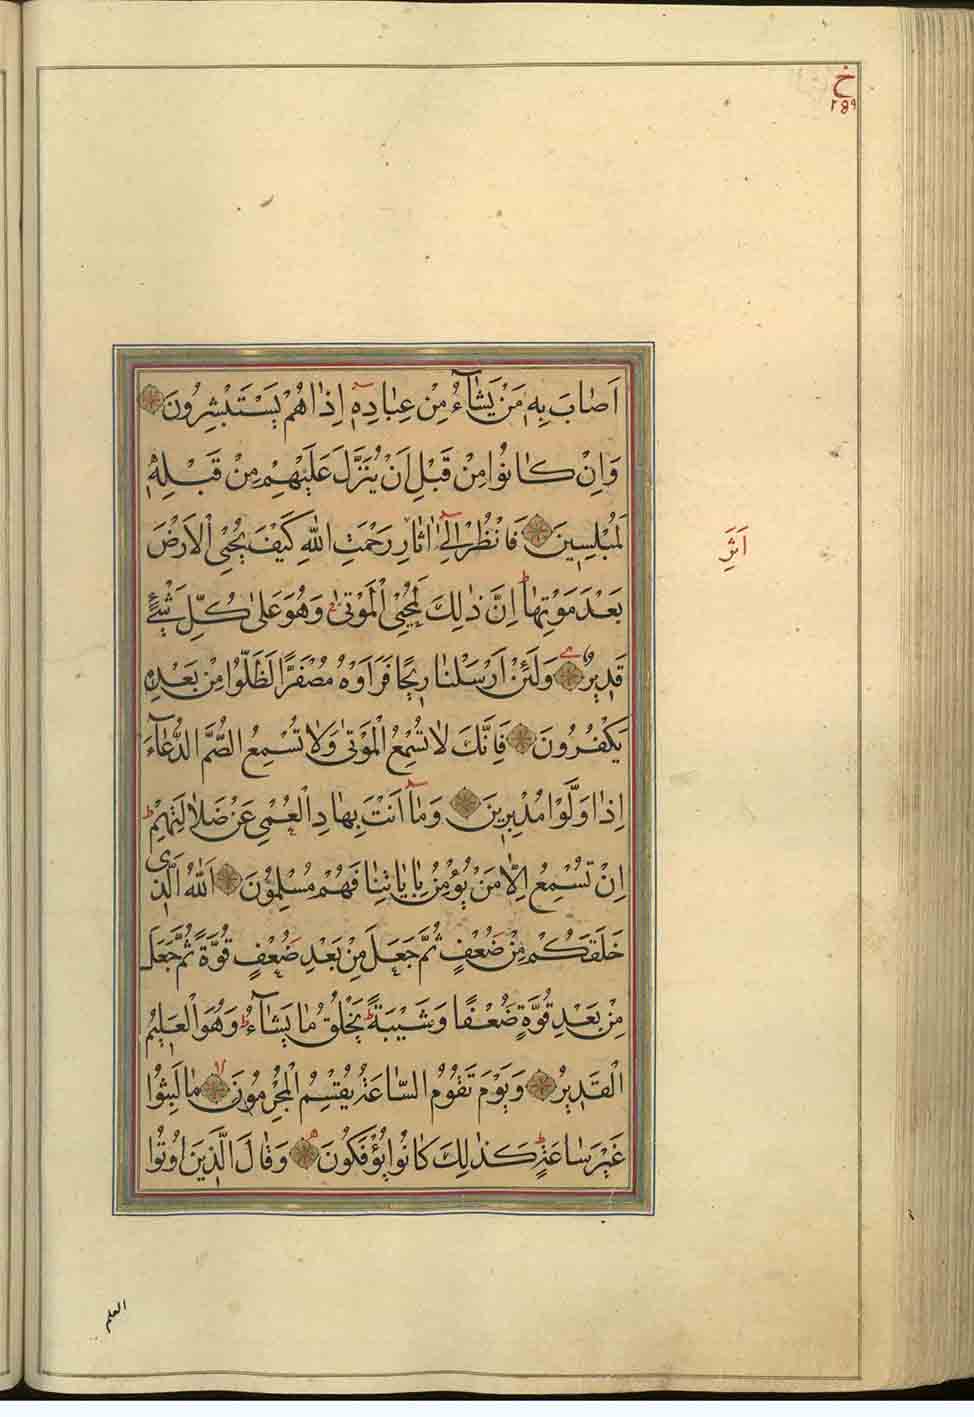 خ
٢٥٩
اَصَابَ بِهٖ مَنْ يَشَآءُ مِنْ عِبَادِهٖٓ اِذَا هُمْ يَسْتَبْشِرُونَ
وَاِنْ كَانُوا مِنْ قَبْلِ اَنْ يُنَزَّلَ عَلَيْهِمْ مِنْ قَبْلِهٖ
لَمُبْلِسِينَ فَانْظُرْ اِلٰٓى اٰثَارِ رَحْمَتِ اللهِ كَيْفَ يُحْيِي الْاَرْضَ
اَثَرِ
بَعْدَ مَوْتِهَا ط اِنَّ ذٰلِكَ لَمُحْيِي الْمَوْتٰى وَهُوَ عَلٰى كُلِّ شَيْءٍ
قَدِيرٌ وَلَئِنْ اَرْسَلْنَا رِيحًا فَرَاَوْهُ مُصْفَرًّا لَظَلُّوا مِنْ بَعْدِهٖ
يَكْفُرُونَ فَاِنَّكَ لَا تُسْمِعُ الْمَوْتٰى وَلَا تُسْمِعُ الصُّمَّ الدُّعَآءَ
اِذَا وَلَّوْا مُدْبِرِينَ وَمَآ اَنْتَ بِهَادِ الْعُمْيِ عَنْ ضَلَالَتِهِمْ ط
اِنْ تُسْمِعُ اِلَّا مَنْ يُؤْمِنُ بِاٰيَاتِنَا فَهُمْ مُسْلِمُونَ اَللهُ الَّذِي
خَلَقَكُمْ مِنْ ضُعْفٍ ثُمَّ جَعَلَ مِنْ بَعْدِ ضُعْفٍ قُوَّةً ثُمَّ جَعَلَ
مِنْ بَعْدِ قُوَّةٍ ضُعْفًا وَشَيْبَةً ط يَخْلُقُ مَا يَشَآءُ ط وَهُوَ الْعَلِيمُ
الْقَدِيرُ وَيَوْمَ تَقُومُ السَّاعَةُ يُقْسِمُ الْمُجْرِمُونَ لا مَا لَبِثُوا
غَيْرَ سَاعَةٍ ط كَذٰلِكَ كَانُوا يُؤْفَكُونَ وَقَالَ الَّذِينَ اُوتُوا
العلم